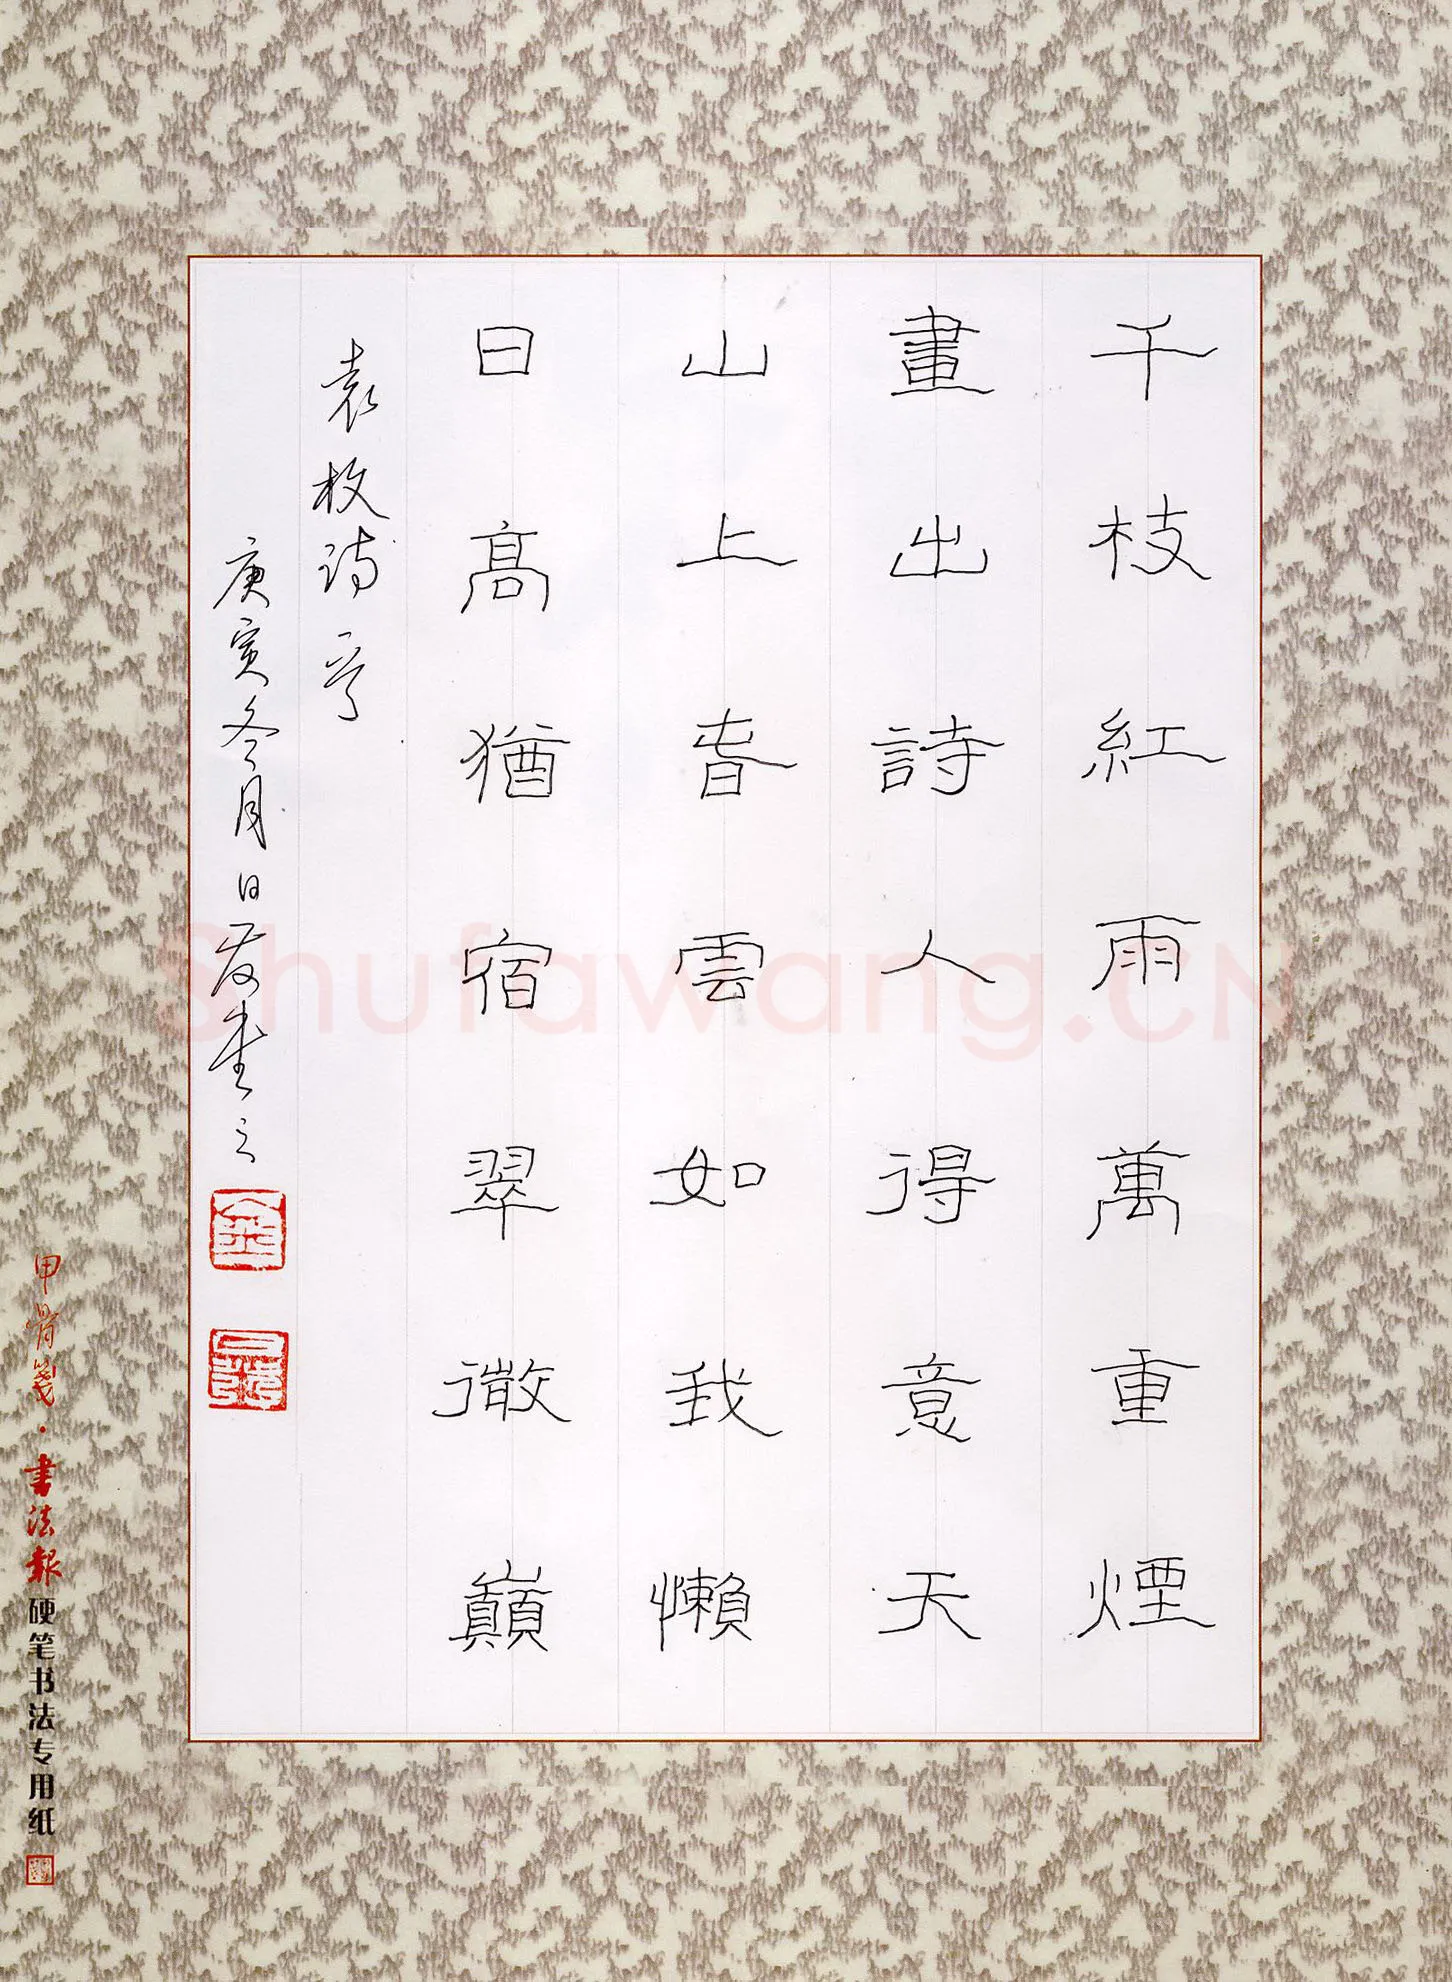 千枝紅雨萬重煙
畫出詩人得意天
山上春雲如我懶
日高猶宿翠微巔
袁枚诗一首
庚寅冬月日发书之
甲骨笺·书法報硬笔书法专用纸
Shufawang.CN